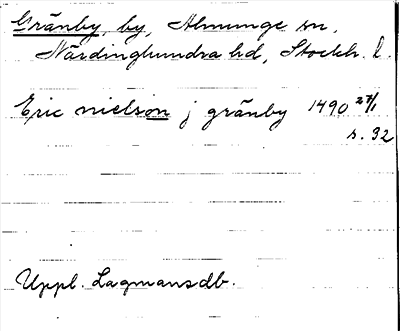 Gränby, by, Almunge sn,
Närdinghundra hd, Stockh. l.
Eric nielson j gränby 1490 27/1
s. 92
Uppl. Lagmansdb.